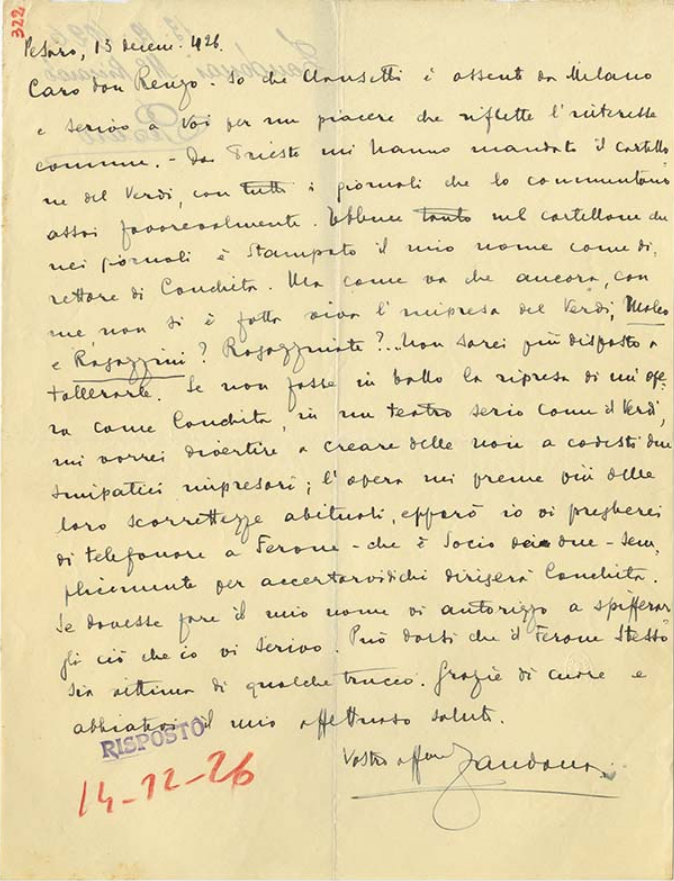 322
Pesaro, 13 decem. 926.
Caro don Renzo. So che Clausetti è assente da Milano
e scrivo a Voi per un piacere che riflette l'interesse
comune. - Da Trieste mi hanno mandato il cartello
ne del Verdi, con tutti i giornali che lo commentano
assai favorevolmente. Ebbene tanto nel cartellone che
nei giornali è stampato il mio nome come di,
rettore di Conchita. Ma come va che ancora, con
me non si è fatta viva l'impresa del Verdi,
e Ragazzini? Ragazzinate?... Non sarei più disposto a
tollerarle. Se non fosse in ballo la ripresa di un'ope,
ra come Conchita, in un teatro serio come il Verdi,
mi vorrei divertire a creare delle noie a codesti due
simpatici impresari; l'opera mi preme più delle
loro scorrettezze abituali, epperò io vi pregherei
di telefonare a Ferone - che è socio dei due - sem,
plicemente per accertarvi di chi dirigerà Conchita.
Se dovesse fare il mio nome vi autorizzo a spifferar
gli ciò che io vi scrivo. Può darsi che il Ferone stesso
sia vittima di qualche trucco. Grazie di cuore e
abbiatevi il mio affettuoso saluto.
Vostro affmo Zandonai
RISPOSTO
14-12-26